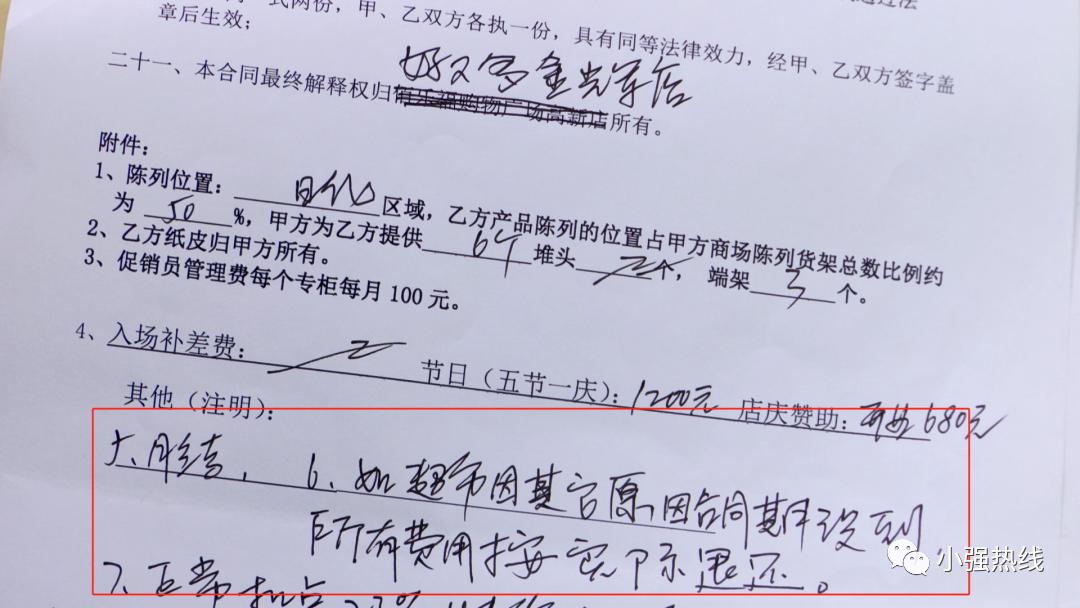 式两份，甲、乙双方各执一份，具有同等法律效力，经甲、乙双方签字盖
章后生效；
好又多金光军店
二十一、本合同最终解释权归购物广场高新店所有。
附件：
1、陈列位置：日化区域，乙方产品陈列的位置占甲方商场陈列货架总数比例约
为50%，甲方为乙方提供64堆头个，端架3个。
2、乙方纸皮归甲方所有。
3、促销员管理费每个专柜每月100元。
4、入场补差费：节日（五节一庆）：1200元 店庆赞助：680元
其他（注明）：
大月结， 6、如超市因其它原因合同期没到
所有费用按实际退还。
7、正常扣点
小强热线